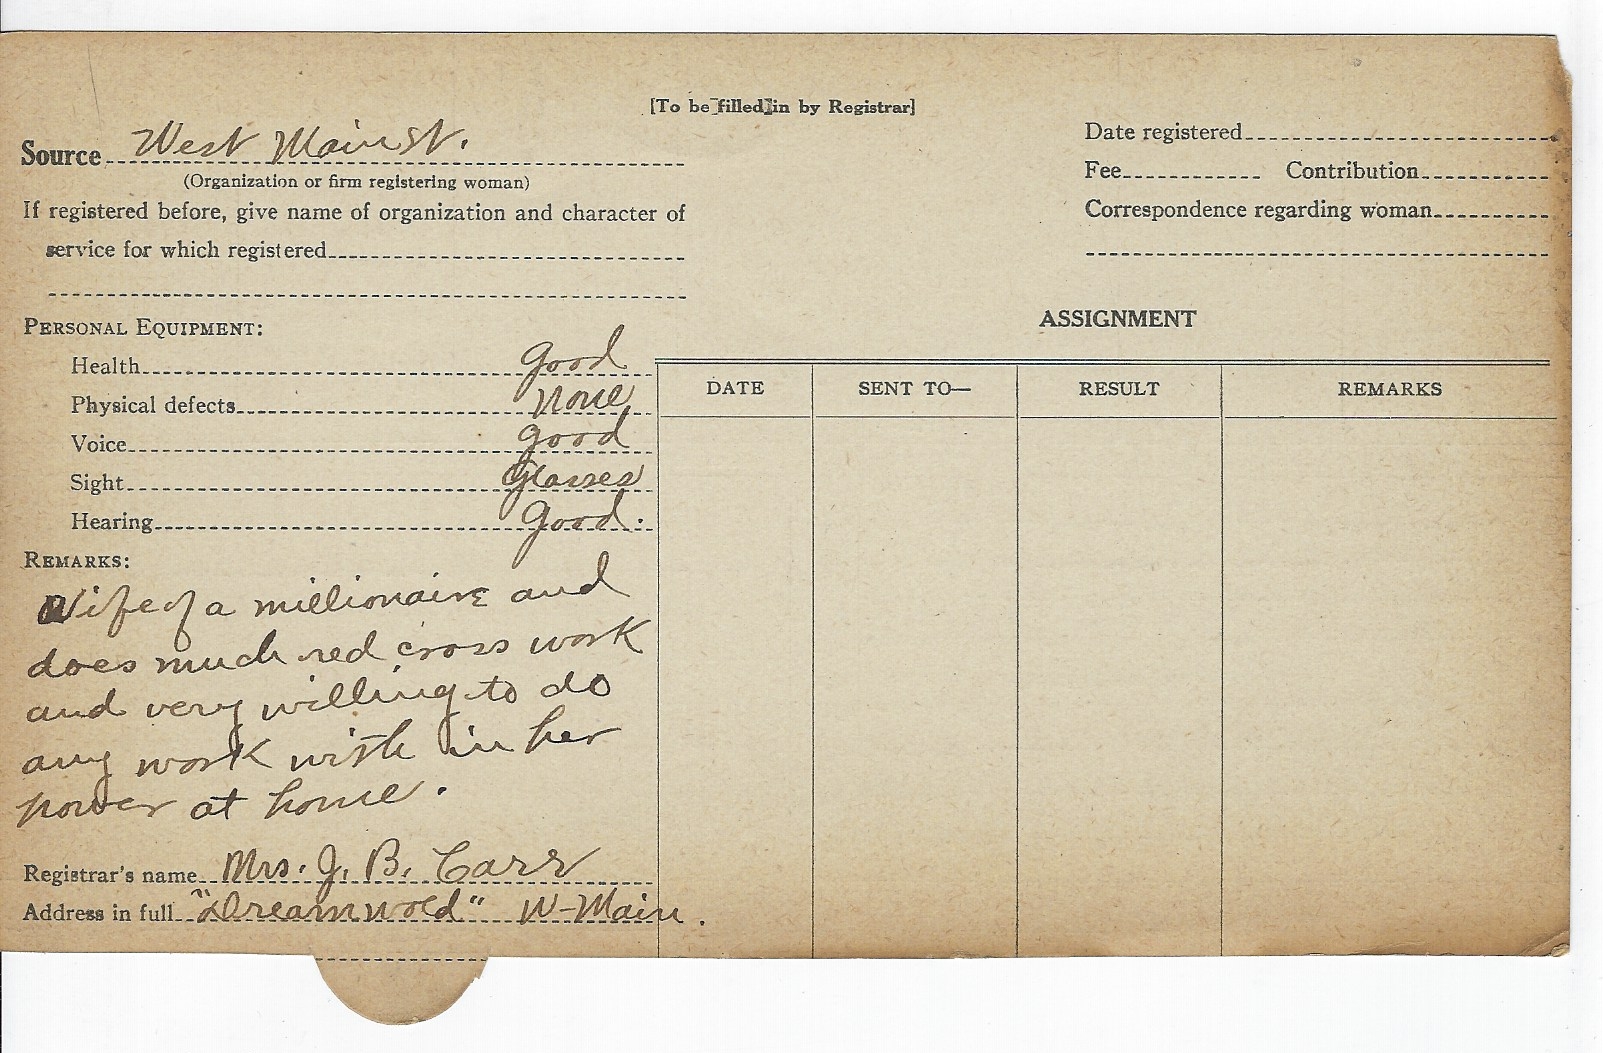 [To be filled in by Registrar]
Source West Main St.
(Organization or firm registering woman)
If registered before, give name of organization and character of
service for which registered
Date registered
Fee Contribution
Correspondence regarding woman
PERSONAL EQUIPMENT:
Health good
Physical defects none
Voice good
Sight Glasses
Hearing Good.
REMARKS:
Wife of a millionaire and
does much red cross work
and very willing to do
any work with in her
power at home.
Registrar's name Mrs. J. B. Carr
Address in full "Dreamwold" W-Main.
ASSIGNMENT
DATE SENT TO— RESULT REMARKS